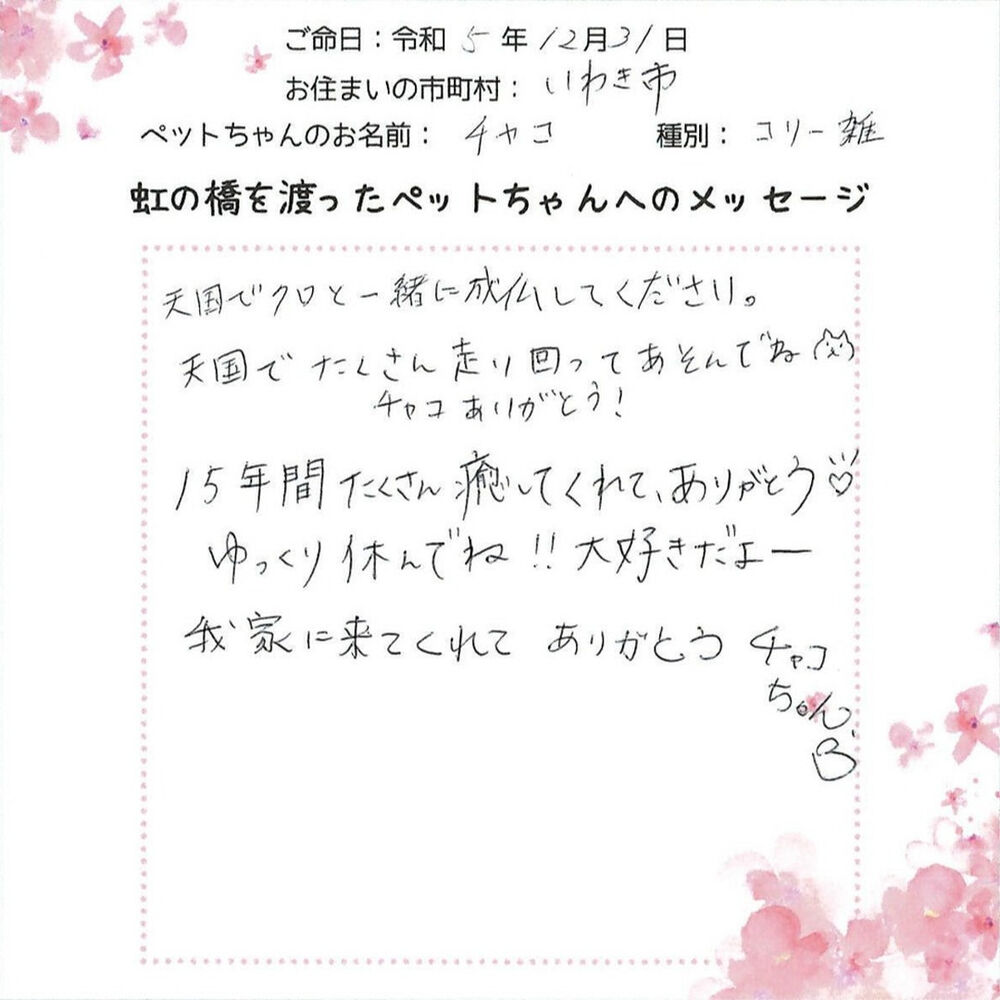 ご命日：令和 5 年 12月31日
お住まいの市町村： いわき市
ペットちゃんのお名前： チャコ 種別： コリー雑
虹の橋を渡ったペットちゃんへのメッセージ
天国でクロと一緒に成仏してください。
天国で たくさん 走り回って あそんでね
チャコ ありがとう！
15年間 たくさん 癒してくれて、ありがとう♡
ゆっくり休んでね!! 大好きだよー
我家に来てくれて ありがとう チャコ
ちゃん